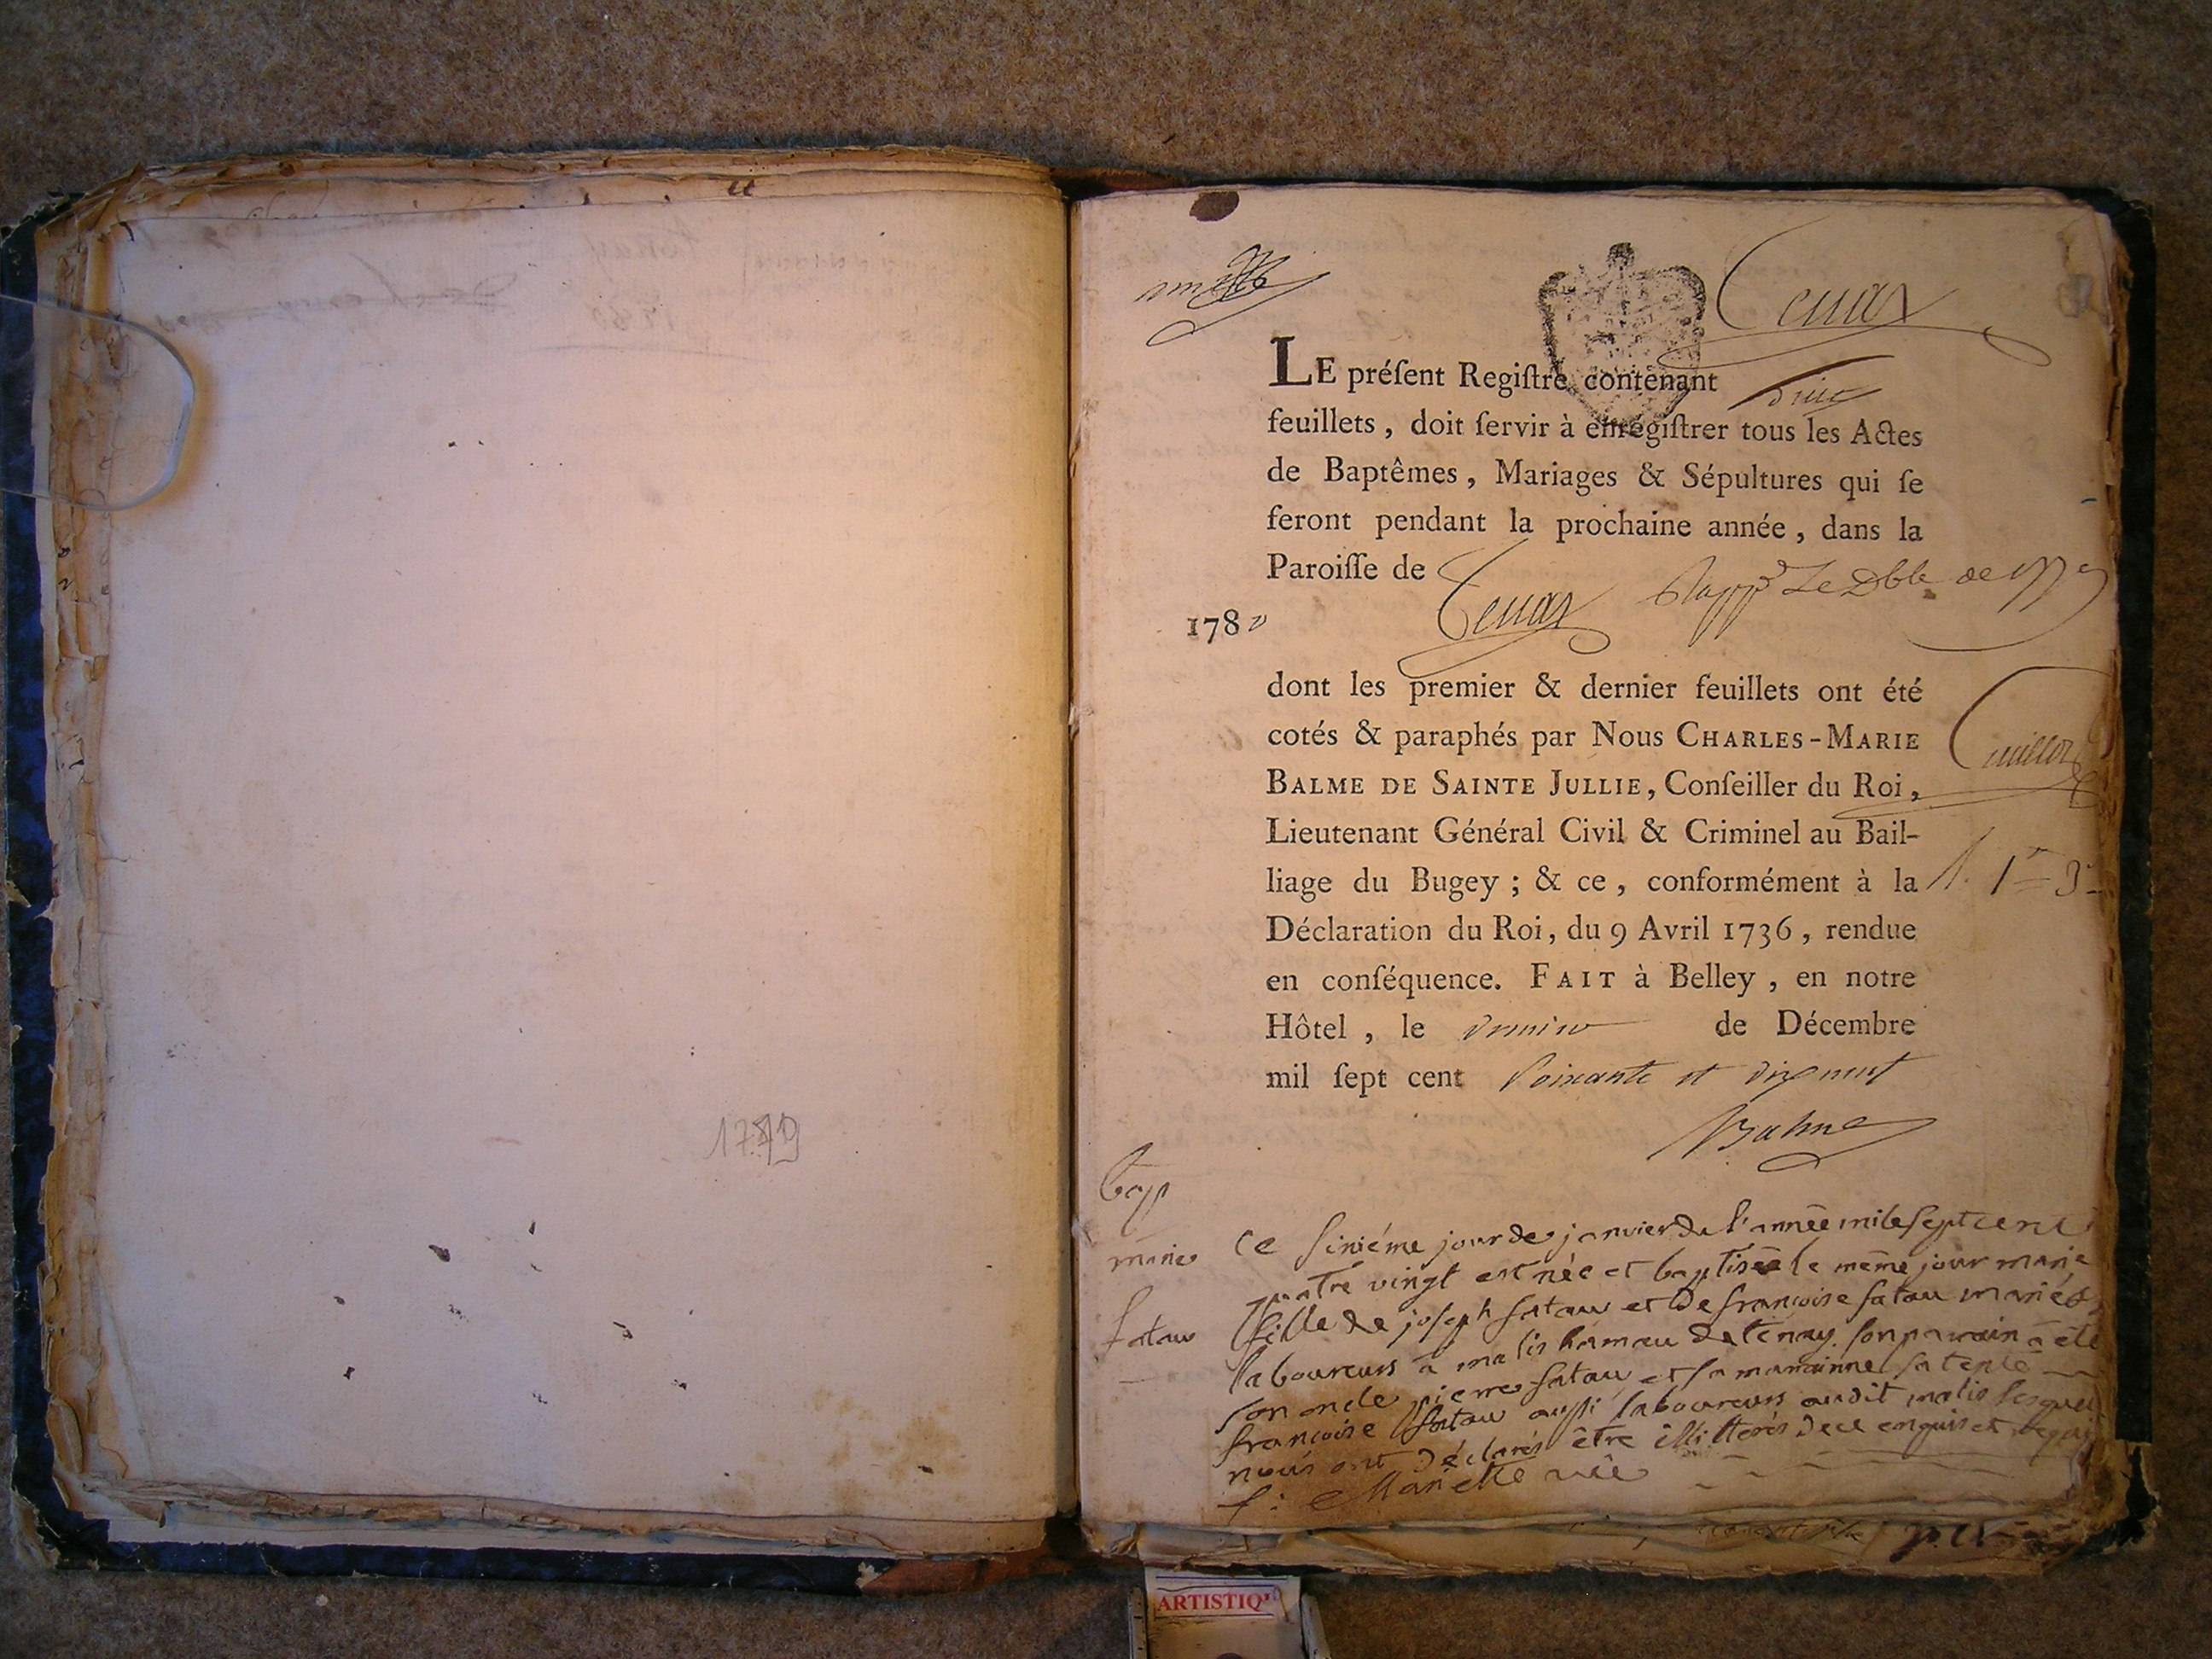 1779
Tenay
LE préſent Regiſtre contenant
feuillets, doit ſervir à enrégiſtrer tous les Actes
de Baptêmes, Mariages & Sépultures qui ſe
feront pendant la prochaine année, dans la
Paroiſſe de Tenay
1780
dont les premier & dernier feuillets ont été
cotés & paraphés par Nous CHARLES-MARIE
BALME DE SAINTE JULLIE, Conſeiller du Roi,
Lieutenant Général Civil & Criminel au Bail-
liage du Bugey; & ce, conformément à la
Déclaration du Roi, du 9 Avril 1736, rendue
en conſéquence. FAIT à Belley, en notre
Hôtel, le de Décembre
mil ſept cent soixante et dix neuf
Balme
bap
marie
fatau
Ce sixiéme jour de janvier de l'année mile sept cent
quatre vingt est née et baptisée le même jour marie
fille de joseph fatau et de françoise fatau mariés
laboureurs à malis hameau de tenay. son parain a été
son oncle pierre fatau et sa marainne sa tente
francoise fatau aussi laboureurs audit malis lesquels
nous ont déclarés être illitterés de ce enquis et requis
f: Mariette vic
ARTISTIQ